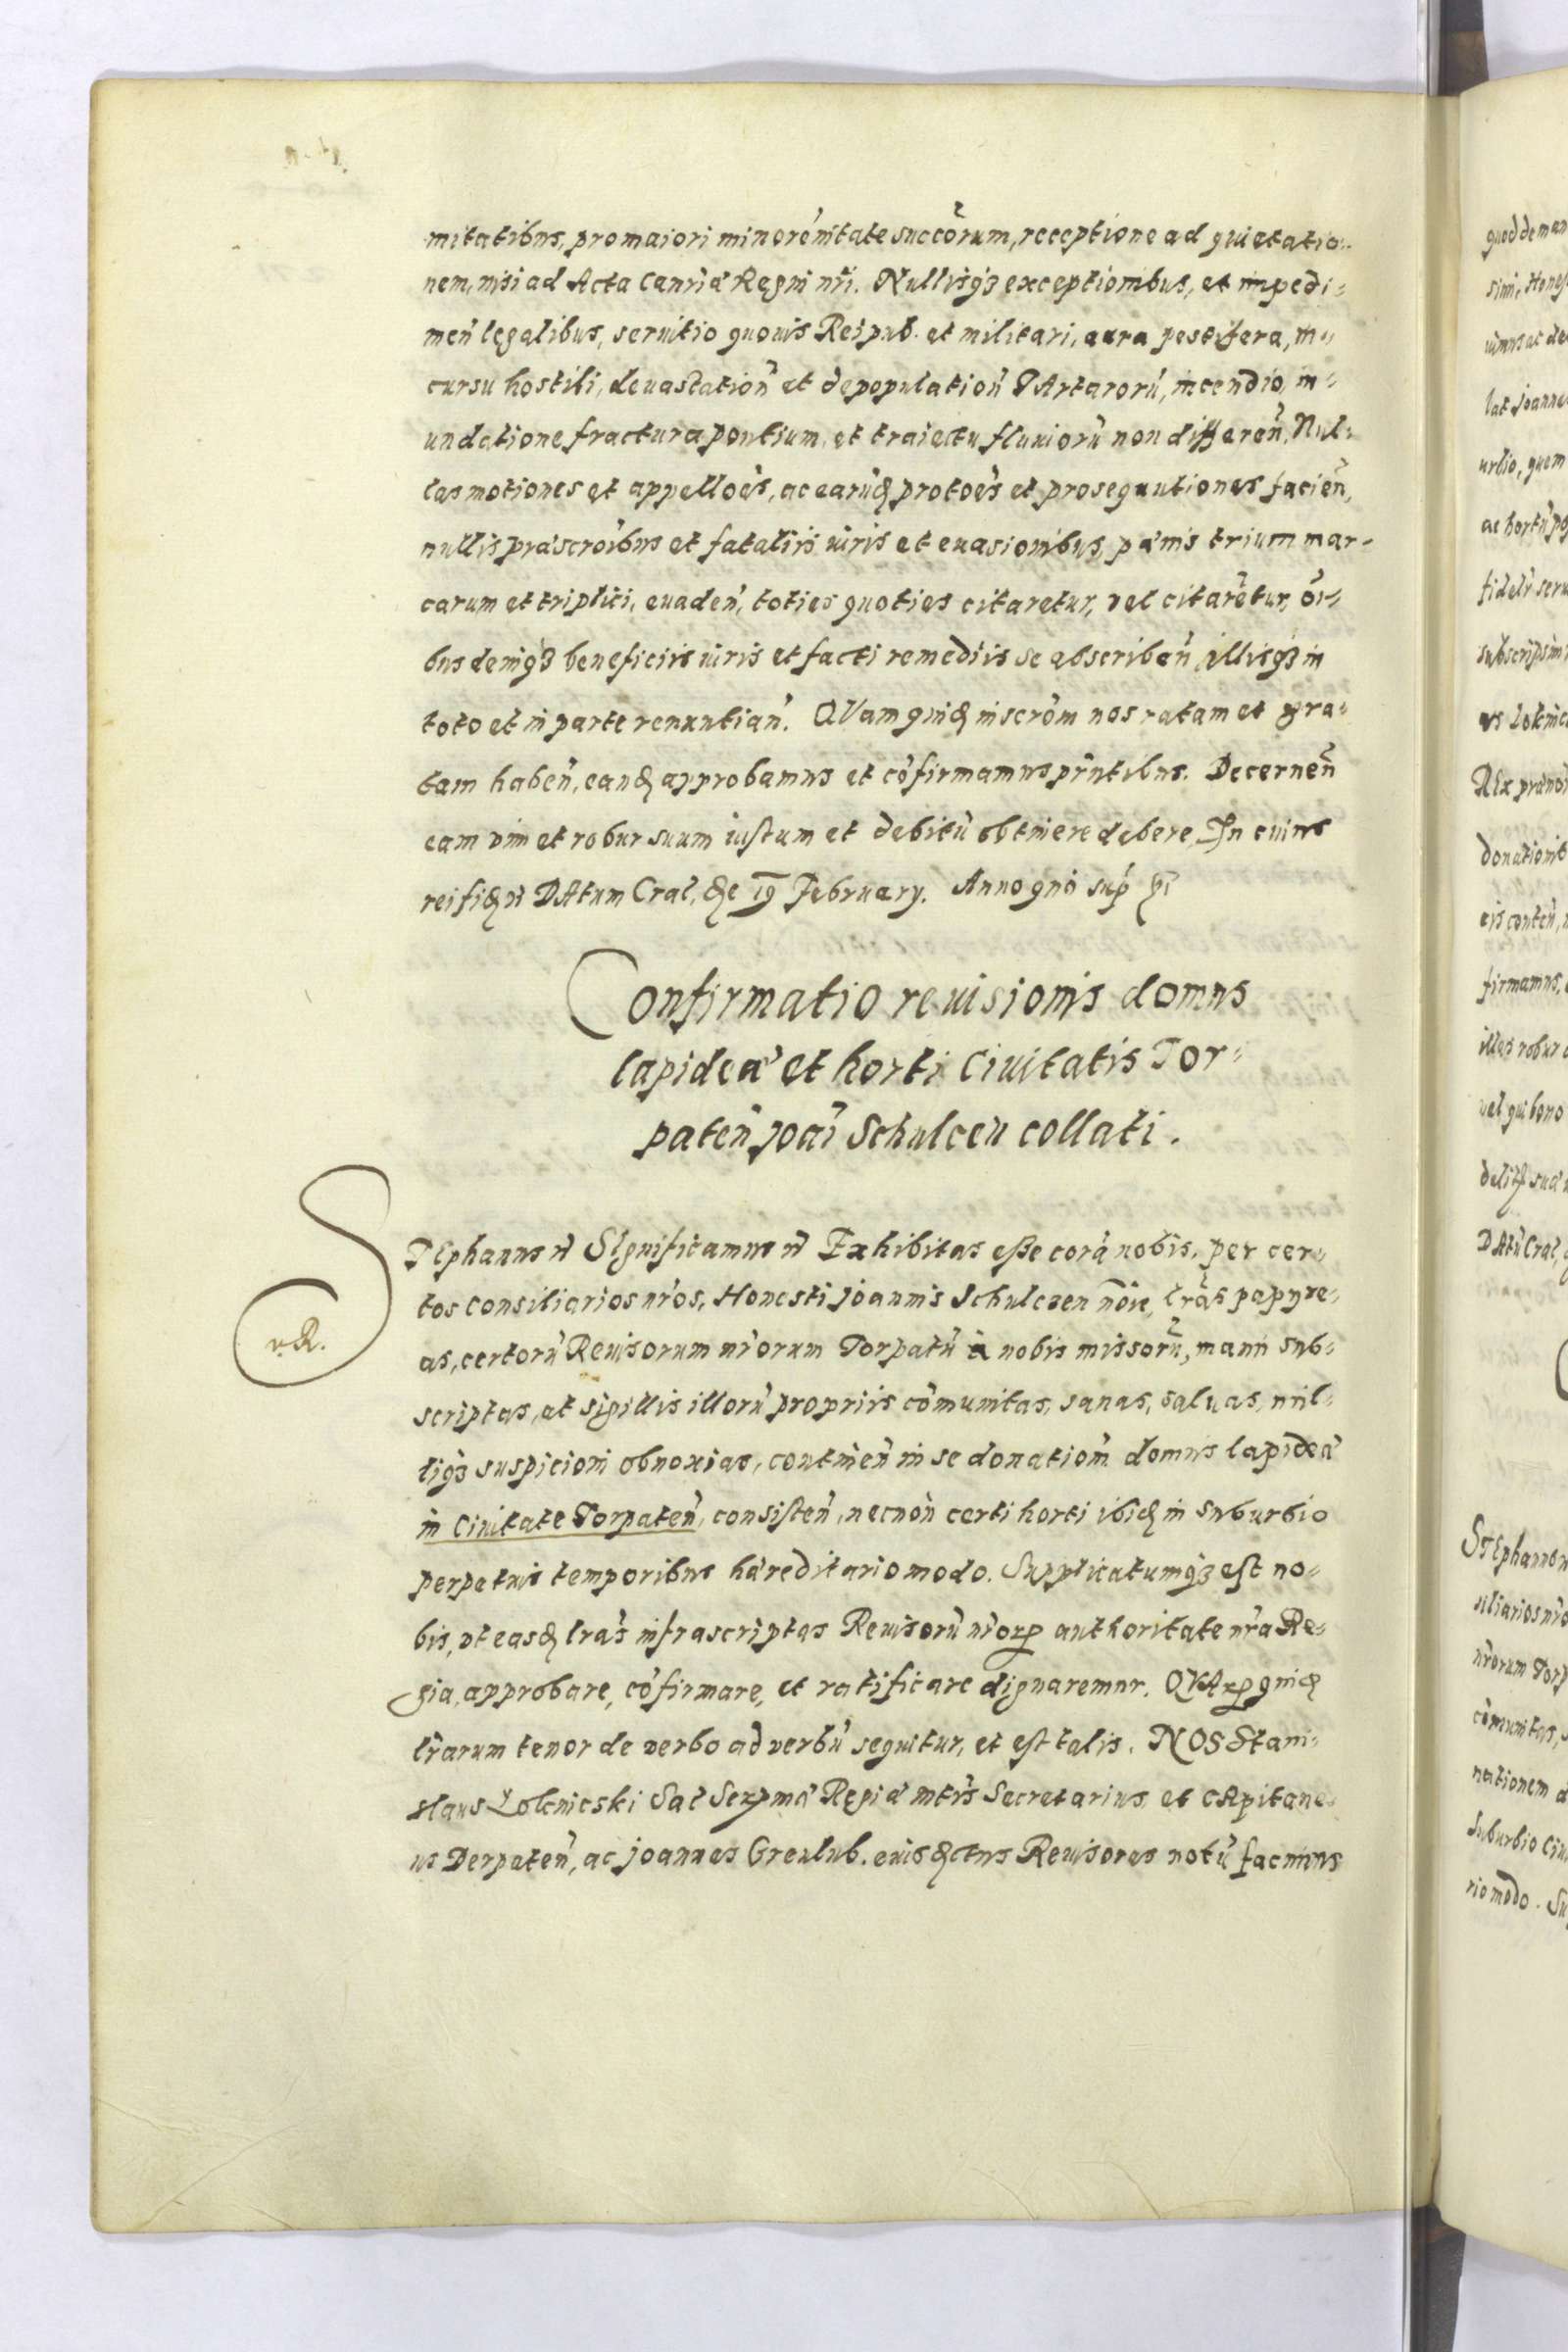 mitatibus, pro maiori minorēnitate succōrum, receptione ad quietatio-
nem, nisi ad Acta Canriæ Regni nr̄i. Nullisqȝ exceptionibus, et impedi-
men̄ legalibus, seruitio quouis Reipub. et militari, aura pestifera, in-
cursu hostili, deuastation̄ et depopulation̄ TArtarorū, incendio, in-
undatione fractura pontium, et traiectu fluuiorū non differen̄, Nul-
las motiones et appellōēs, ac earūd protōēs et prosequutiones facien̄,
nullis præscrōibus et fatalijs iuris et euasionibus, pænis trium mar-
carum et triplici, euaden̄, toties quoties citaretur, vel citarētur, ōi-
bus deniqȝ beneficiis iuris et facti remediis se abscriben̄ illisqȝ in
toto et in parte renuntian̄. QVam quid inscrōm nos ratam et gra-
tam haben̄, eand approbamus et cōfirmamus pr̄ntibus. Decernen̄
eam vim et robur suum iustum et debitū obtinere debere. In cuius
rei fid n̄ DAtum Crac. de 19 February. Anno qnō sup̄
Confirmatio reuisionis domus
lapideæ et horti Ciuitatis Tor-
paten̄ Joaī Schulcen collati.
STEphanus n̄ SIgnificamus n̄ Exhibitas esse corā nobis, per cer-
tos Consiliarios nr̄os, Honesti Joannis Schulczen nōīe, lr̄ās papyre-
as, certorū Reuisorum nr̄orum Torpatū à nobis missorū, manū sub-
scriptas, et sigillis illorū propriis cōmunitas, sanas, saluas, nul-
liqȝ suspicioni obnoxias, continen̄ in se donation̄ domus lapideæ
in Ciuitate Torpaten̄, consisten̄, necnōn certi horti ibid in suburbio
perpetuis temporibus hæreditario modo. Supplicatumqȝ est no-
bis, vt easd lr̄as infrascriptas Reuisorū nr̄oꝝ authoritate nr̄a Re-
gia, approbare, cōfirmare, et ratificare dignaremur. QVAꝝ quid
lr̄arum tenor de verbo ad verbū sequitur, et est talis. NOS Stani-
slaus Lolcnicski Sac Serꝝmæ Regiæ mtīs Secretarius et CApitane-
us Derpaten̄, ac Joannes Grenlub. eiusd ctus Reuisores notū facimus
v.R.